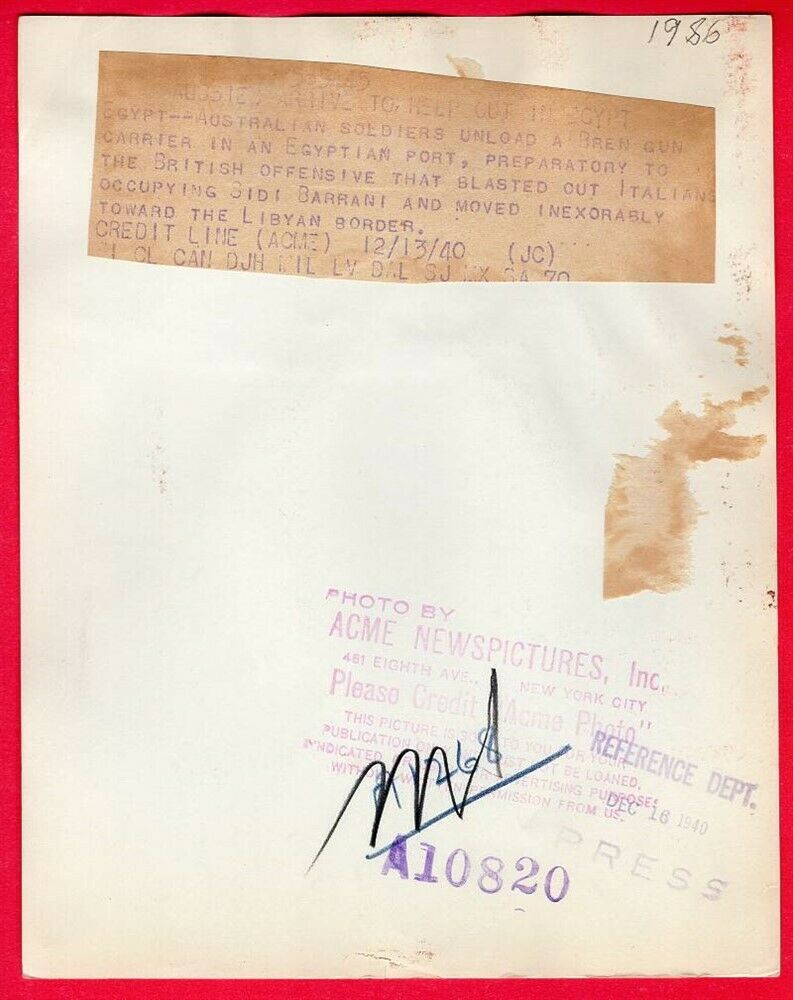 1986
AUSSIES ARRIVE TO HELP OUT IN EGYPT
EGYPT--AUSTRALIAN SOLDIERS UNLOAD A BREN GUN
CARRIER IN AN EGYPTIAN PORT, PREPARATORY TO
THE BRITISH OFFENSIVE THAT BLASTED OUT ITALIANS
OCCUPYING SIDI BARRANI AND MOVED INEXORABLY
TOWARD THE LIBYAN BORDER.
CREDIT LINE (ACME) 12/13/40 (JC)
CL CAN DJH MIL LV DAL SJ SA 70
PHOTO BY
ACME NEWSPICTURES, Inc.
461 EIGHTH AVE., NEW YORK CITY
Please Credit "Acme Photo"
THIS PICTURE IS SOLD TO YOU FOR YOUR
PUBLICATION MUST NOT BE LOANED,
SYNDICATED ADVERTISING PURPOSES
WITHOUT PERMISSION FROM US.
REFERENCE DEPT.
DEC 16 1940
PRESS
A10820